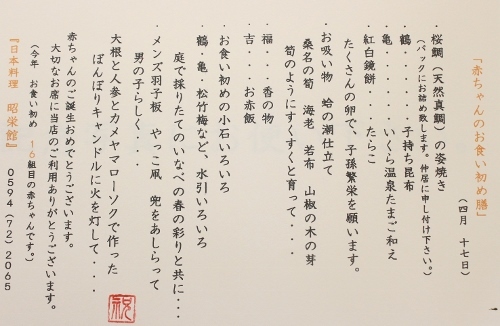 「赤ちゃんのお食い初め膳」
（四月　十七日）
・桜鯛（天然真鯛）の姿焼き
（パックにお詰め致します。仲居に申し付け下さい。）
鶴・・・・・・子持ち昆布
亀・・・・・・いくら温泉たまご和え
・紅白鏡餅・・・・たらこ
たくさんの卵で、子孫繁栄を願います。
・お吸い物　蛤の潮仕立て
桑名の筍　海老　若布　山椒の木の芽
筍のようにすくすくと育って・・・・
・福・・・香の物
・吉・・・お赤飯
・お食い初めの小石いろいろ
・鶴・亀・松竹梅など、水引いろいろ
庭で採りたてのいなべの春の彩りと共に・・・
・メンズ羽子板　やっこ凧　兜をあしらって
男の子らしく・・・
大根と人参とカメヤマローソクで作った
ぼんぼりキャンドルに火を灯して・・・
祝
赤ちゃんのご誕生おめでとうございます。
大切なお席に当店のご利用ありがとうございます。
（今年　お食い初め　16組目の赤ちゃんです。）
『日本料理　昭栄館』　0594（72）2065